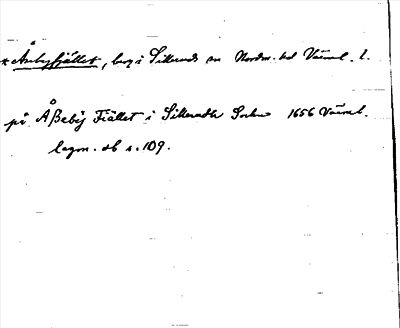 * Åsebyfjället, berg i Silleruds sn Nordm. hd Värml. l.
på Åßebÿ Fiället i Silleruds Sochn 1656 Värml.
lagm. db s. 109.